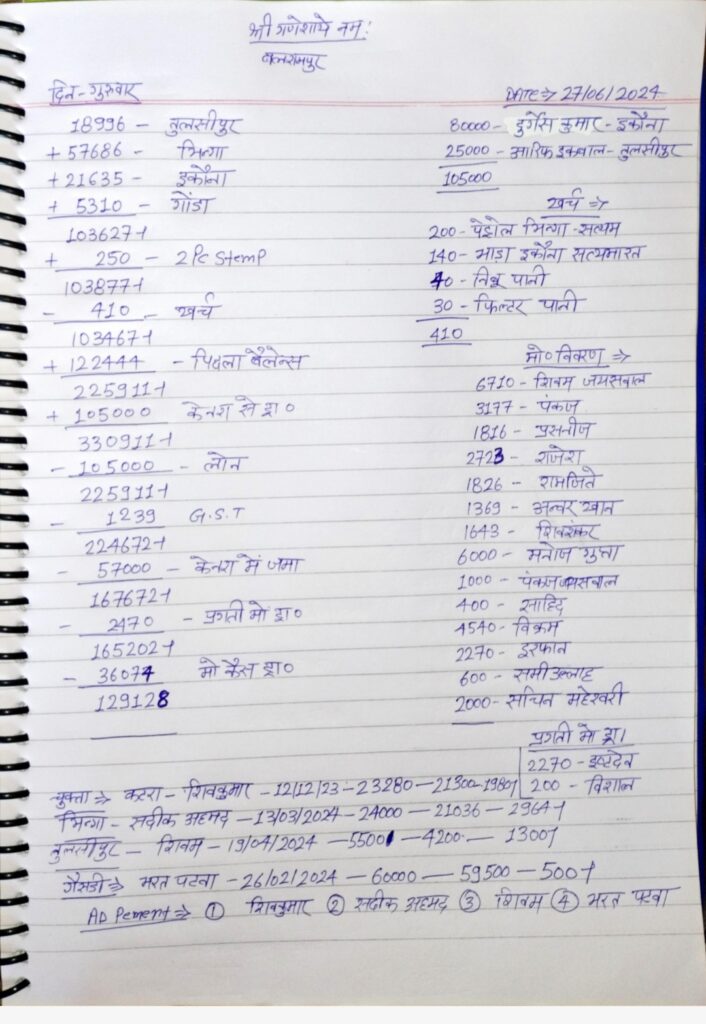 श्री गणेशाये नमः
बलरामपुर
दिन - गुरुवार
DATE ⇒ 27/06/2024
18996 - तुलसीपुर
+ 57686 - भिन्गा
+ 21635 - इकौना
+ 5310 - गोंडा
103627-1
+ 250 - 2 Pc Stemp
103877-1
- 410 - खर्च
103467-1
+ 122444 - पिछला बैलेन्स
225911-1
+ 105000 केनरा से ड्रा०
330911-1
- 105000 - लोन
225911-1
- 1239 G.S.T
224672-1
- 57000 - केनरा में जमा
167672-1
- 2470 - प्रगती मो ड्रा०
165202-1
- 36074 मो कैस ड्रा०
129128
80000 - दुर्गेस कुमार - इकौना
25000 - आरिफ इकबाल - तुलसीपुर
105000
खर्च ⇒
200 - पेट्रोल भिन्गा - सत्यम
140 - भाडा इकौना सत्यभारत
40 - निम्बू पानी
30 - फिल्टर पानी
410
मो० विवरण ⇒
6710 - शिवम जयसवाल
3177 - पंकज
1816 - प्रसनीज
2723 - राजेश
1826 - रामजिते
1369 - अनवर खान
1643 - शिवशंकर
6000 - मनोज गुप्ता
1000 - पंकज जयसवाल
400 - साहिद
4540 - विक्रम
2270 - इरफान
600 - समीउल्लाह
2000 - सचिन महेश्वरी
प्रगती मो ड्रा।
2270 - इष्टदेव
200 - विशाल
चुक्ता ⇒ कटरा - शिवकुमार - 12/12/23 - 23280 - 21300 - 1980-1
भिन्गा - सदीक अहमद - 13/03/2024 - 24000 - 21036 - 2964-1
तुलसीपुर - शिवम - 19/04/2024 - 5500 - 4200 - 1300-1
गैसडी ⇒ भरत पटवा - 26/02/2024 - 60000 - 59500 - 500-1
AD Pement ⇒ ① शिवकुमार ② सदीक अहमद ③ शिवम ④ भरत पटवा